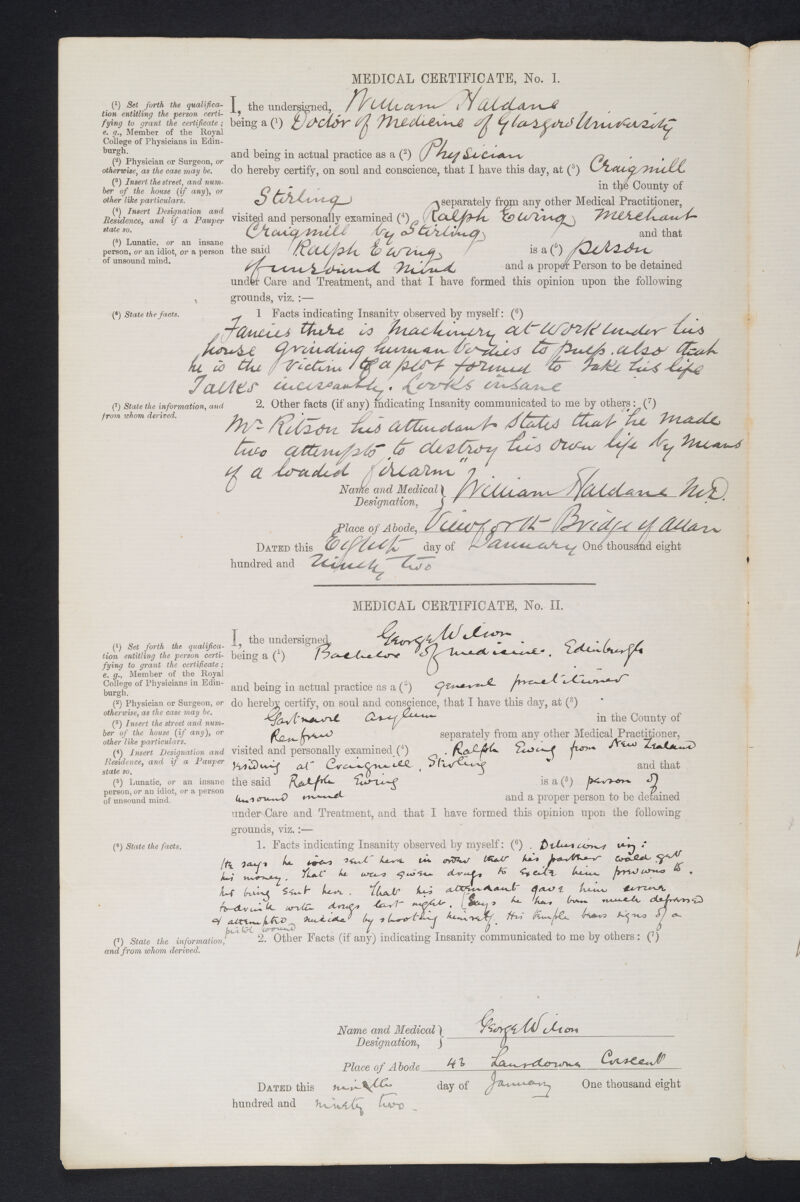 MEDICAL CERTIFICATE, No. I.
(1) Set forth the qualifica-
tion entitling the person certi-
fying to grant the certificate;
e. g., Member of the Royal
College of Physicians in Edin-
burgh.
(2) Physician or Surgeon, or
otherwise, as the case may be.
(3) Insert the street, and num-
ber of the house (if any), or
other like particulars.
(4) Insert Designation and
Residence, and if a Pauper
state so.
(5) Lunatic, or an insane
person, or an idiot, or a person
of unsound mind.
I, the undersigned, William Haldane
being a (1) Doctor of Medicine of Glasgow University
and being in actual practice as a (2) Physician
do hereby certify, on soul and conscience, that I have this day, at (3) Craigmill
in the County of
Stirling separately from any other Medical Practitioner,
visited and personally examined (4) Ralph Ewing, Merchant
Craigmill by Stirling and that
the said Ralph Ewing is a (5) person
of unsound mind and a proper Person to be detained
under Care and Treatment, and that I have formed this opinion upon the following
grounds, viz. :—
(6) State the facts.
1 Facts indicating Insanity observed by myself: (6)
Fancies there is Machinery at work under his
house grinding human bodies to pulp. also that
he is the victim of a plot formed to take his life
Talks incessantly. Looks insane
(7) State the information, and
from whom derived.
2. Other facts (if any) indicating Insanity communicated to me by others: (7)
Mr Ritson his attendant States that "he made
two attempts to destroy his own life by means
of a loaded firearm"
Name and Medical Designation, William Haldane M.D.
Place of Abode, Viewforth Bridge of Allan
DATED this Eighth day of January One thousand eight
hundred and ninety two
MEDICAL CERTIFICATE, No. II.
(1) Set forth the qualifica-
tion entitling the person certi-
fying to grant the certificate;
e. g., Member of the Royal
College of Physicians in Edin-
burgh.
(2) Physician or Surgeon, or
otherwise, as the case may be.
(3) Insert the street and num-
ber of the house (if any), or
other like particulars.
(4) Insert Designation and
Residence, and if a Pauper
state so.
(5) Lunatic, or an insane
person, or an idiot, or a person
of unsound mind.
I, the undersigned George Wilson
being a (1) Bachelor of medicine, Edinburgh
and being in actual practice as a (2) general practitioner
do hereby certify, on soul and conscience, that I have this day, at (3)
Gartnavel asylum in the County of
Renfrew separately from any other Medical Practitioner,
visited and personally examined (4) Ralph Ewing from New Zealand
residing at Craigmill, Stirling and that
the said Ralph Ewing is a (5) person of
unsound mind and a proper person to be detained
under Care and Treatment, and that I have formed this opinion upon the following
grounds, viz. :—
(6) State the facts.
1. Facts indicating Insanity observed by myself: (6) Delusions viz:
He says he was sent here in order that his partner could get
his money. That he was given drugs to excite him previous to
his being sent here. That his attendant gave him
to drink with drugs last night. Says he has been much depressed
& attempted suicide by shooting himself. His temple bears signs of a
pistol wound
(7) State the information,
and from whom derived.
2. Other Facts (if any) indicating Insanity communicated to me by others: (7)
Name and Medical Designation, George Wilson
Place of Abode 43 Lansdowne Crescent
DATED this ninth day of January One thousand eight
hundred and ninety two.